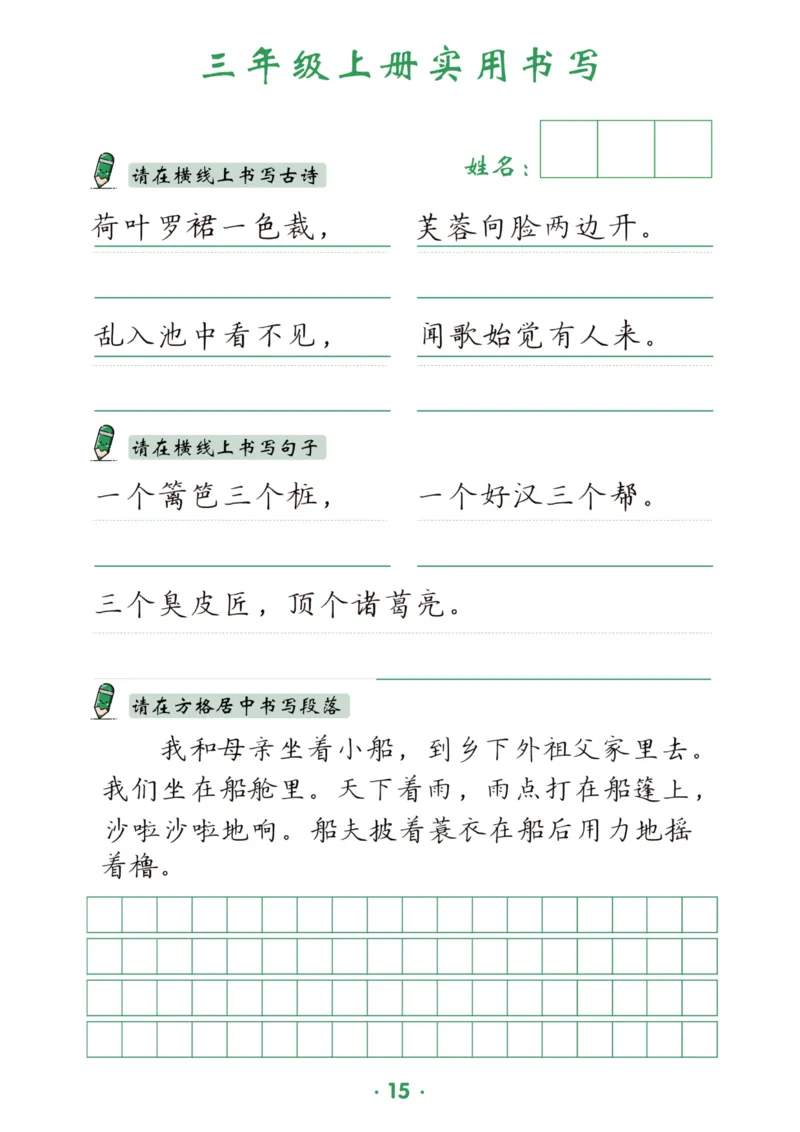 三年级上册实用书写
姓名：
请在横线上书写古诗
荷叶罗裙一色裁， 芙蓉向脸两边开。
乱入池中看不见， 闻歌始觉有人来。
请在横线上书写句子
一个篱笆三个桩， 一个好汉三个帮。
三个臭皮匠，顶个诸葛亮。
请在方格居中书写段落
我和母亲坐着小船，到乡下外祖父家里去。
我们坐在船舱里。天下着雨，雨点打在船篷上，
沙啦沙啦地响。船夫披着蓑衣在船后用力地摇
着橹。
·15·